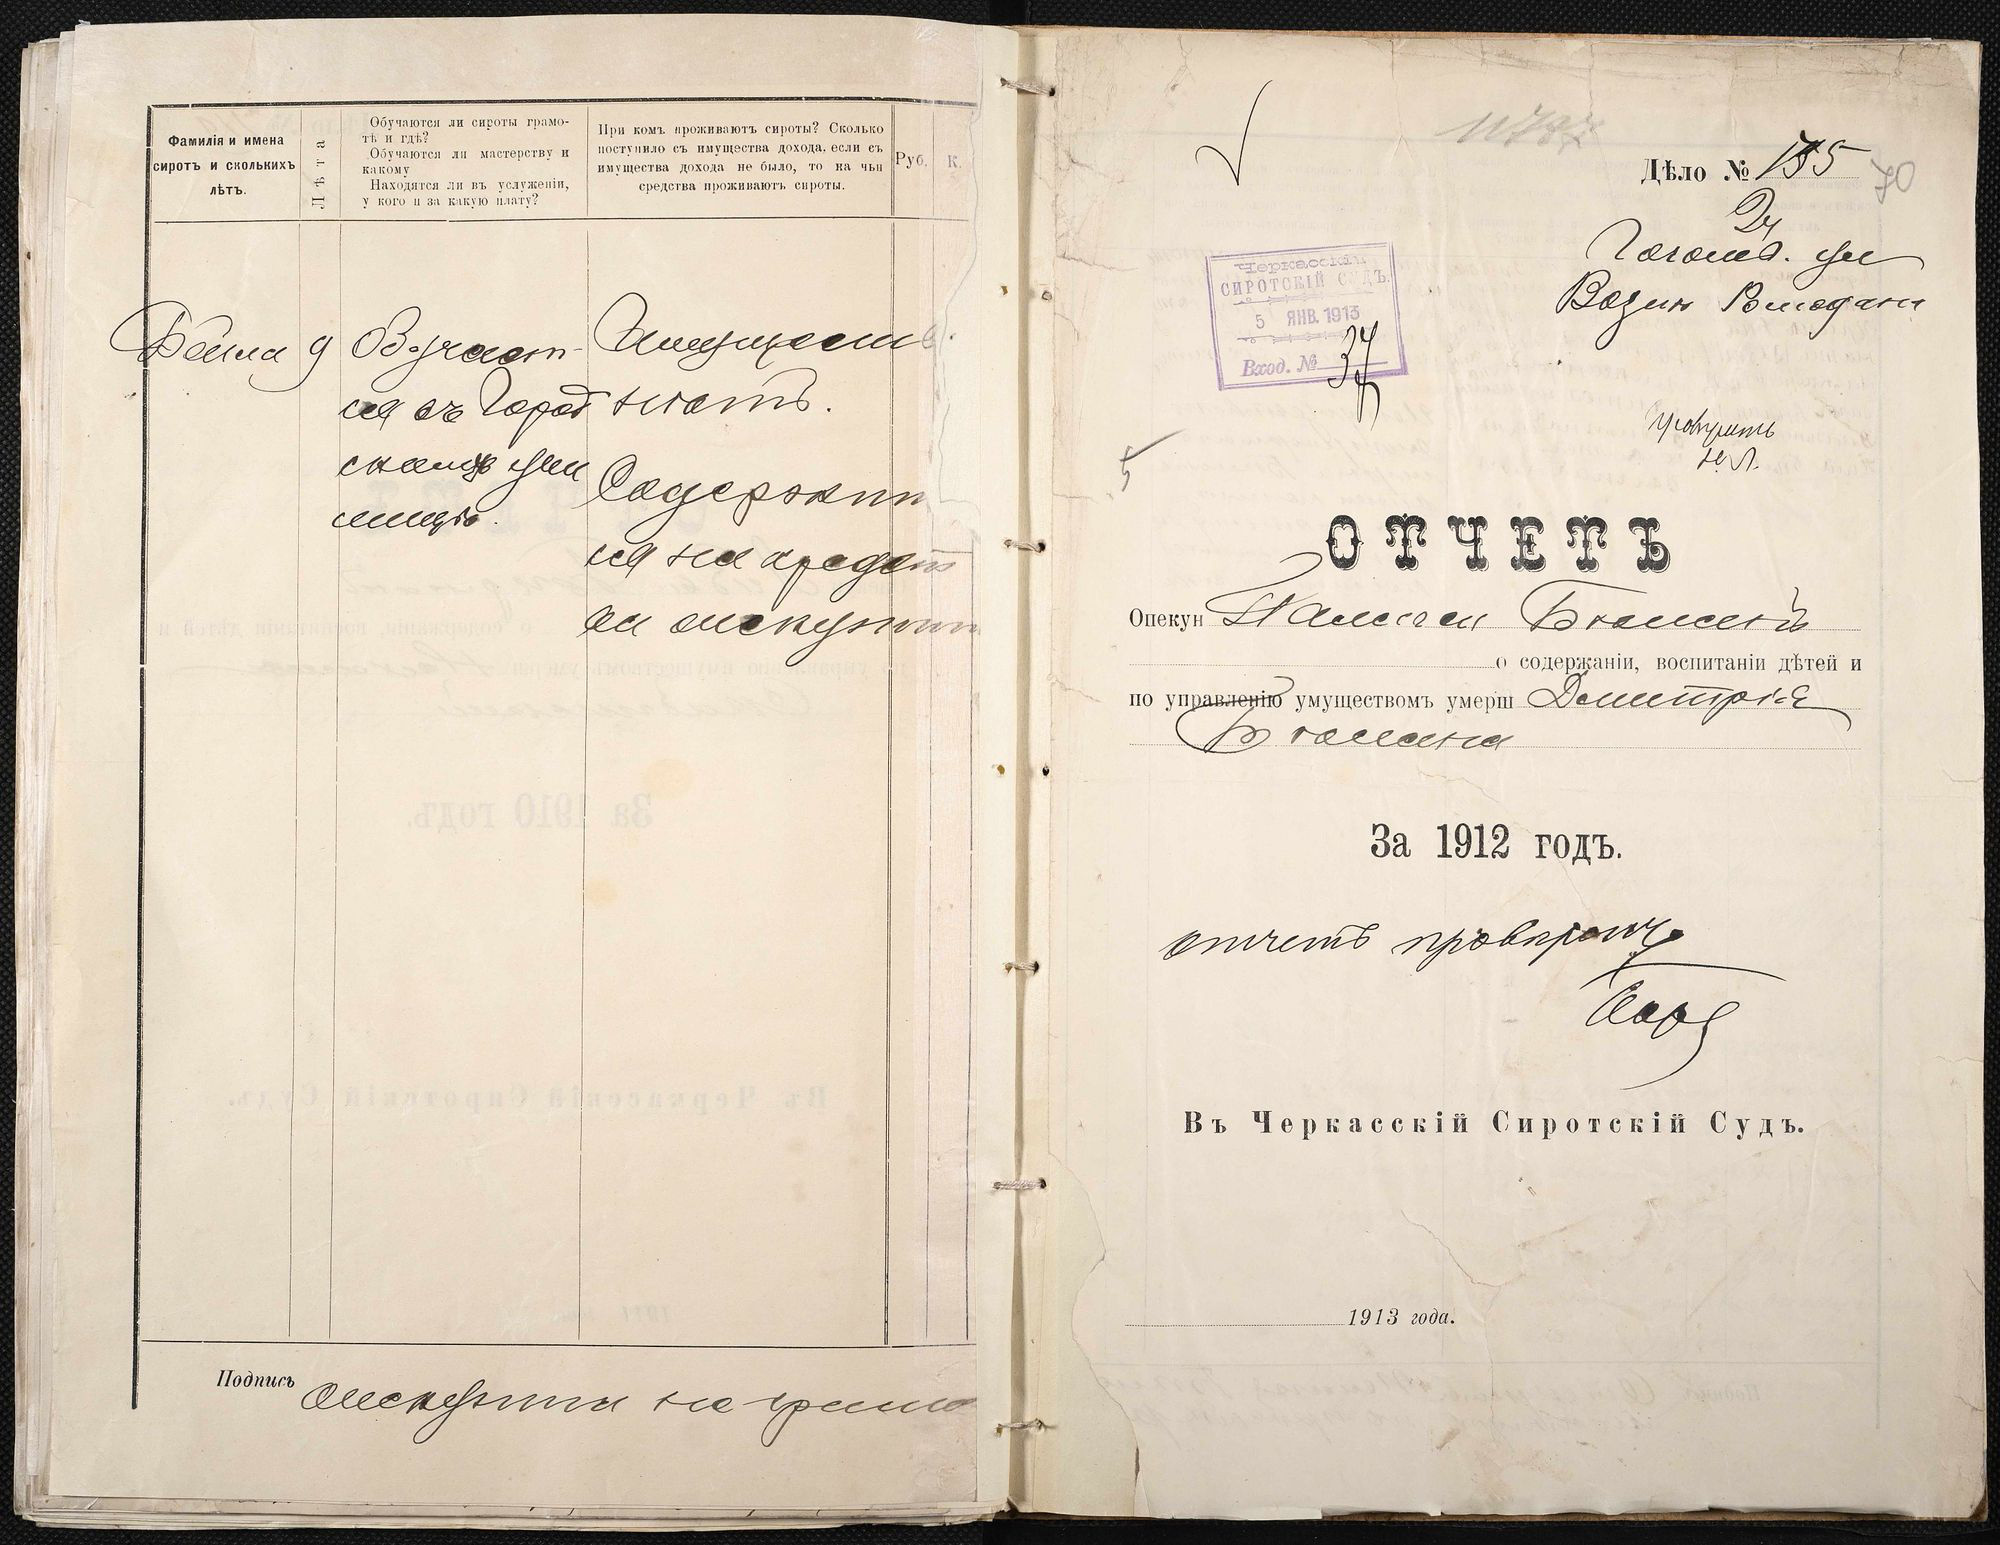 Фамилія и имена
сиротъ и сколькихъ
лѣтъ.
Лѣта
Обучаются ли сироты грамо-
тѣ и гдѣ?
Обучаются ли мастерству и
какому
Находятся ли въ услуженіи,
у кого и за какую плату?
При комъ проживаютъ сироты? Сколько
поступило съ имущества дохода, если съ
имущества дохода не было, то на чьи
средства проживаютъ сироты.
Руб.
К.
Бейла
9
Обучает-
ся въ Город
скомъ учи
лищѣ.
Имуществ.
нѣтъ.
Содержит
ся на средст
ва опекуши
Подпись
опекунши не грамо
Дѣло № 155
70
Гоголев. ул
Черкасскій
СИРОТСКІЙ СУДЪ.
5 ЯНВ. 1913
Вход. № 34
5
ОТЧЕТЪ
Опекун
о содержаніи, воспитаніи дѣтей и
по управленію умуществомъ умерш Дмитрія
За 1912 годъ.
отчетъ провѣренъ
Въ Черкасскій Сиротскій Судъ.
1913 года.